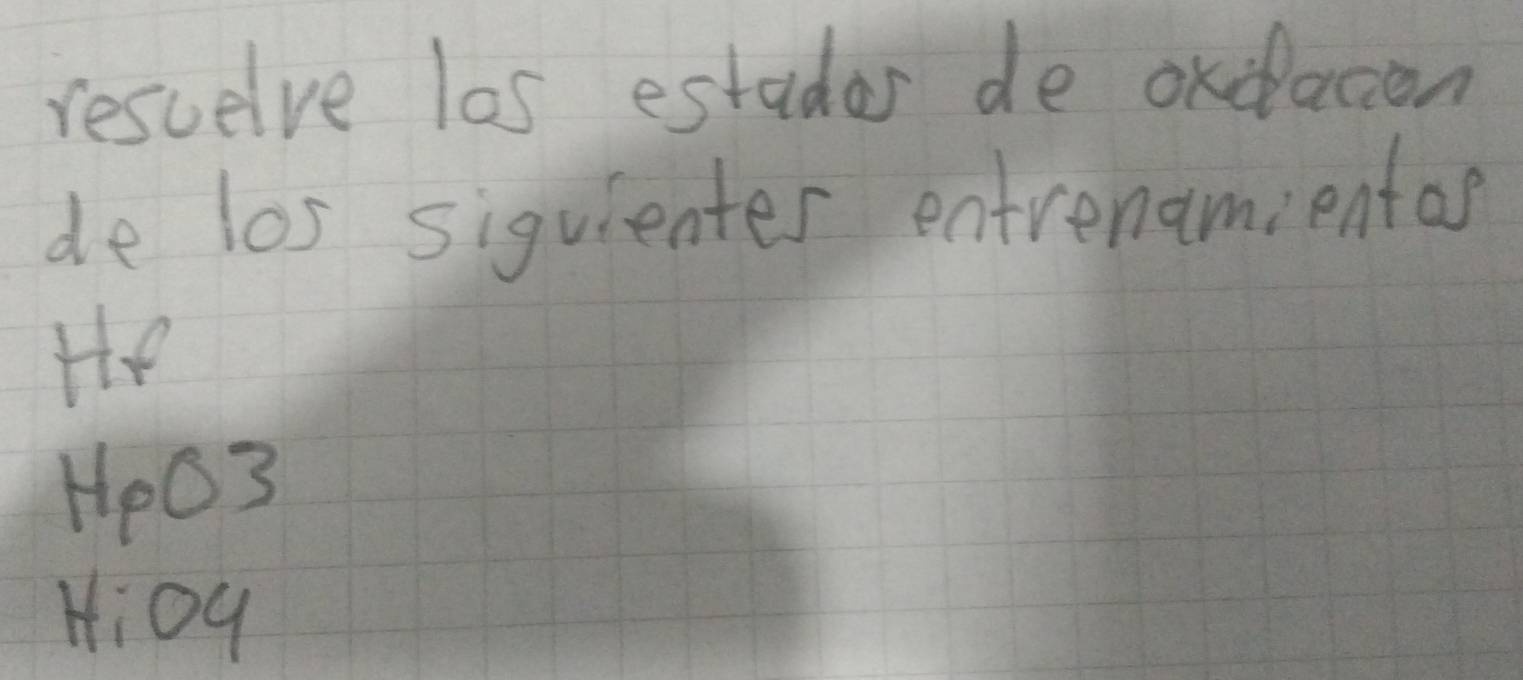 resuelve los estados de oxidacion
de los siguientes entrenamientos
Hf
HpO3
HiO4